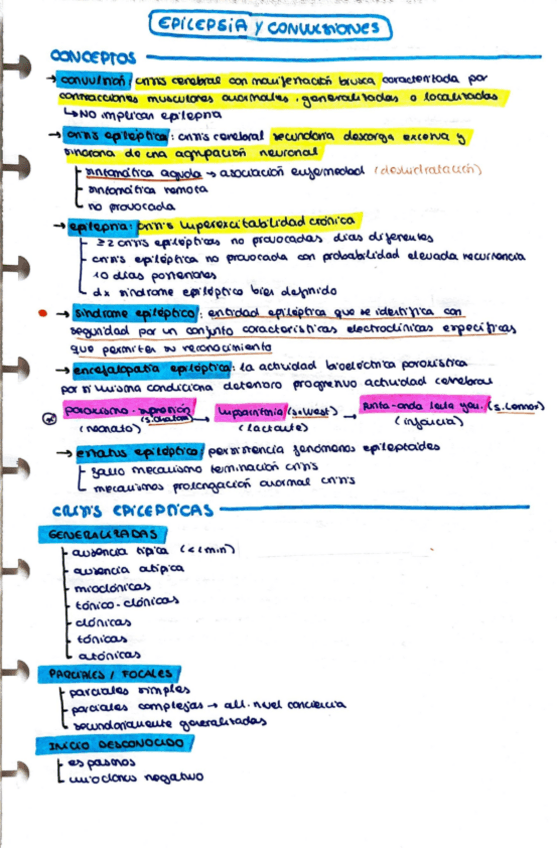 EPILEPSIA Y CONVULSIONES
CONCEPTOS
→ convulsión: crisis cerebral con manifestación brusca caracterizada por
contracciones musculares anormales, generalizadas o localizadas
↳ NO implican epilepsia
→ crisis epiléptica: crisis cerebral secundaria descarga excesiva y
síncrona de una agrupación neuronal
sintomática aguda → asociación enfermedad (deshidratación)
sintomática remota
no provocada
→ epilepsia: crisis hiperexcitabilidad crónica
≥2 crisis epilépticas no provocadas días diferentes
crisis epiléptica no provocada con probabilidad elevada recurrencia
10 días posteriores
dx síndrome epiléptico bien definido
→ síndrome epiléptico: entidad epiléptica que se identifica con
seguridad por un conjunto características electroclínicas específicas
que permiten su reconocimiento
→ encefalopatía epiléptica: la actividad bioeléctrica paroxística
por sí misma condiciona deterioro progresivo actividad cerebral
paroxismo-supresión (s.ohatara) → hipsarritmia (s.west) → punta-onda lenta gen. (s.lennox)
(neonato) (lactante) (infancia)
→ estatus epiléptico: persistencia fenómenos epileptoides
fallo mecanismo terminación crisis
mecanismos prolongación anormal crisis
CRISIS EPILEPTICAS
GENERALIZADAS
ausencia típica (<1min)
ausencia atípica
mioclónicas
tónico-clónicas
clónicas
tónicas
atónicas
PARCIALES / FOCALES
parciales simples
parciales complejas → alt. nivel conciencia
secundariamente generalizadas
INICIO DESCONOCIDO
espasmos
mioclono negativo